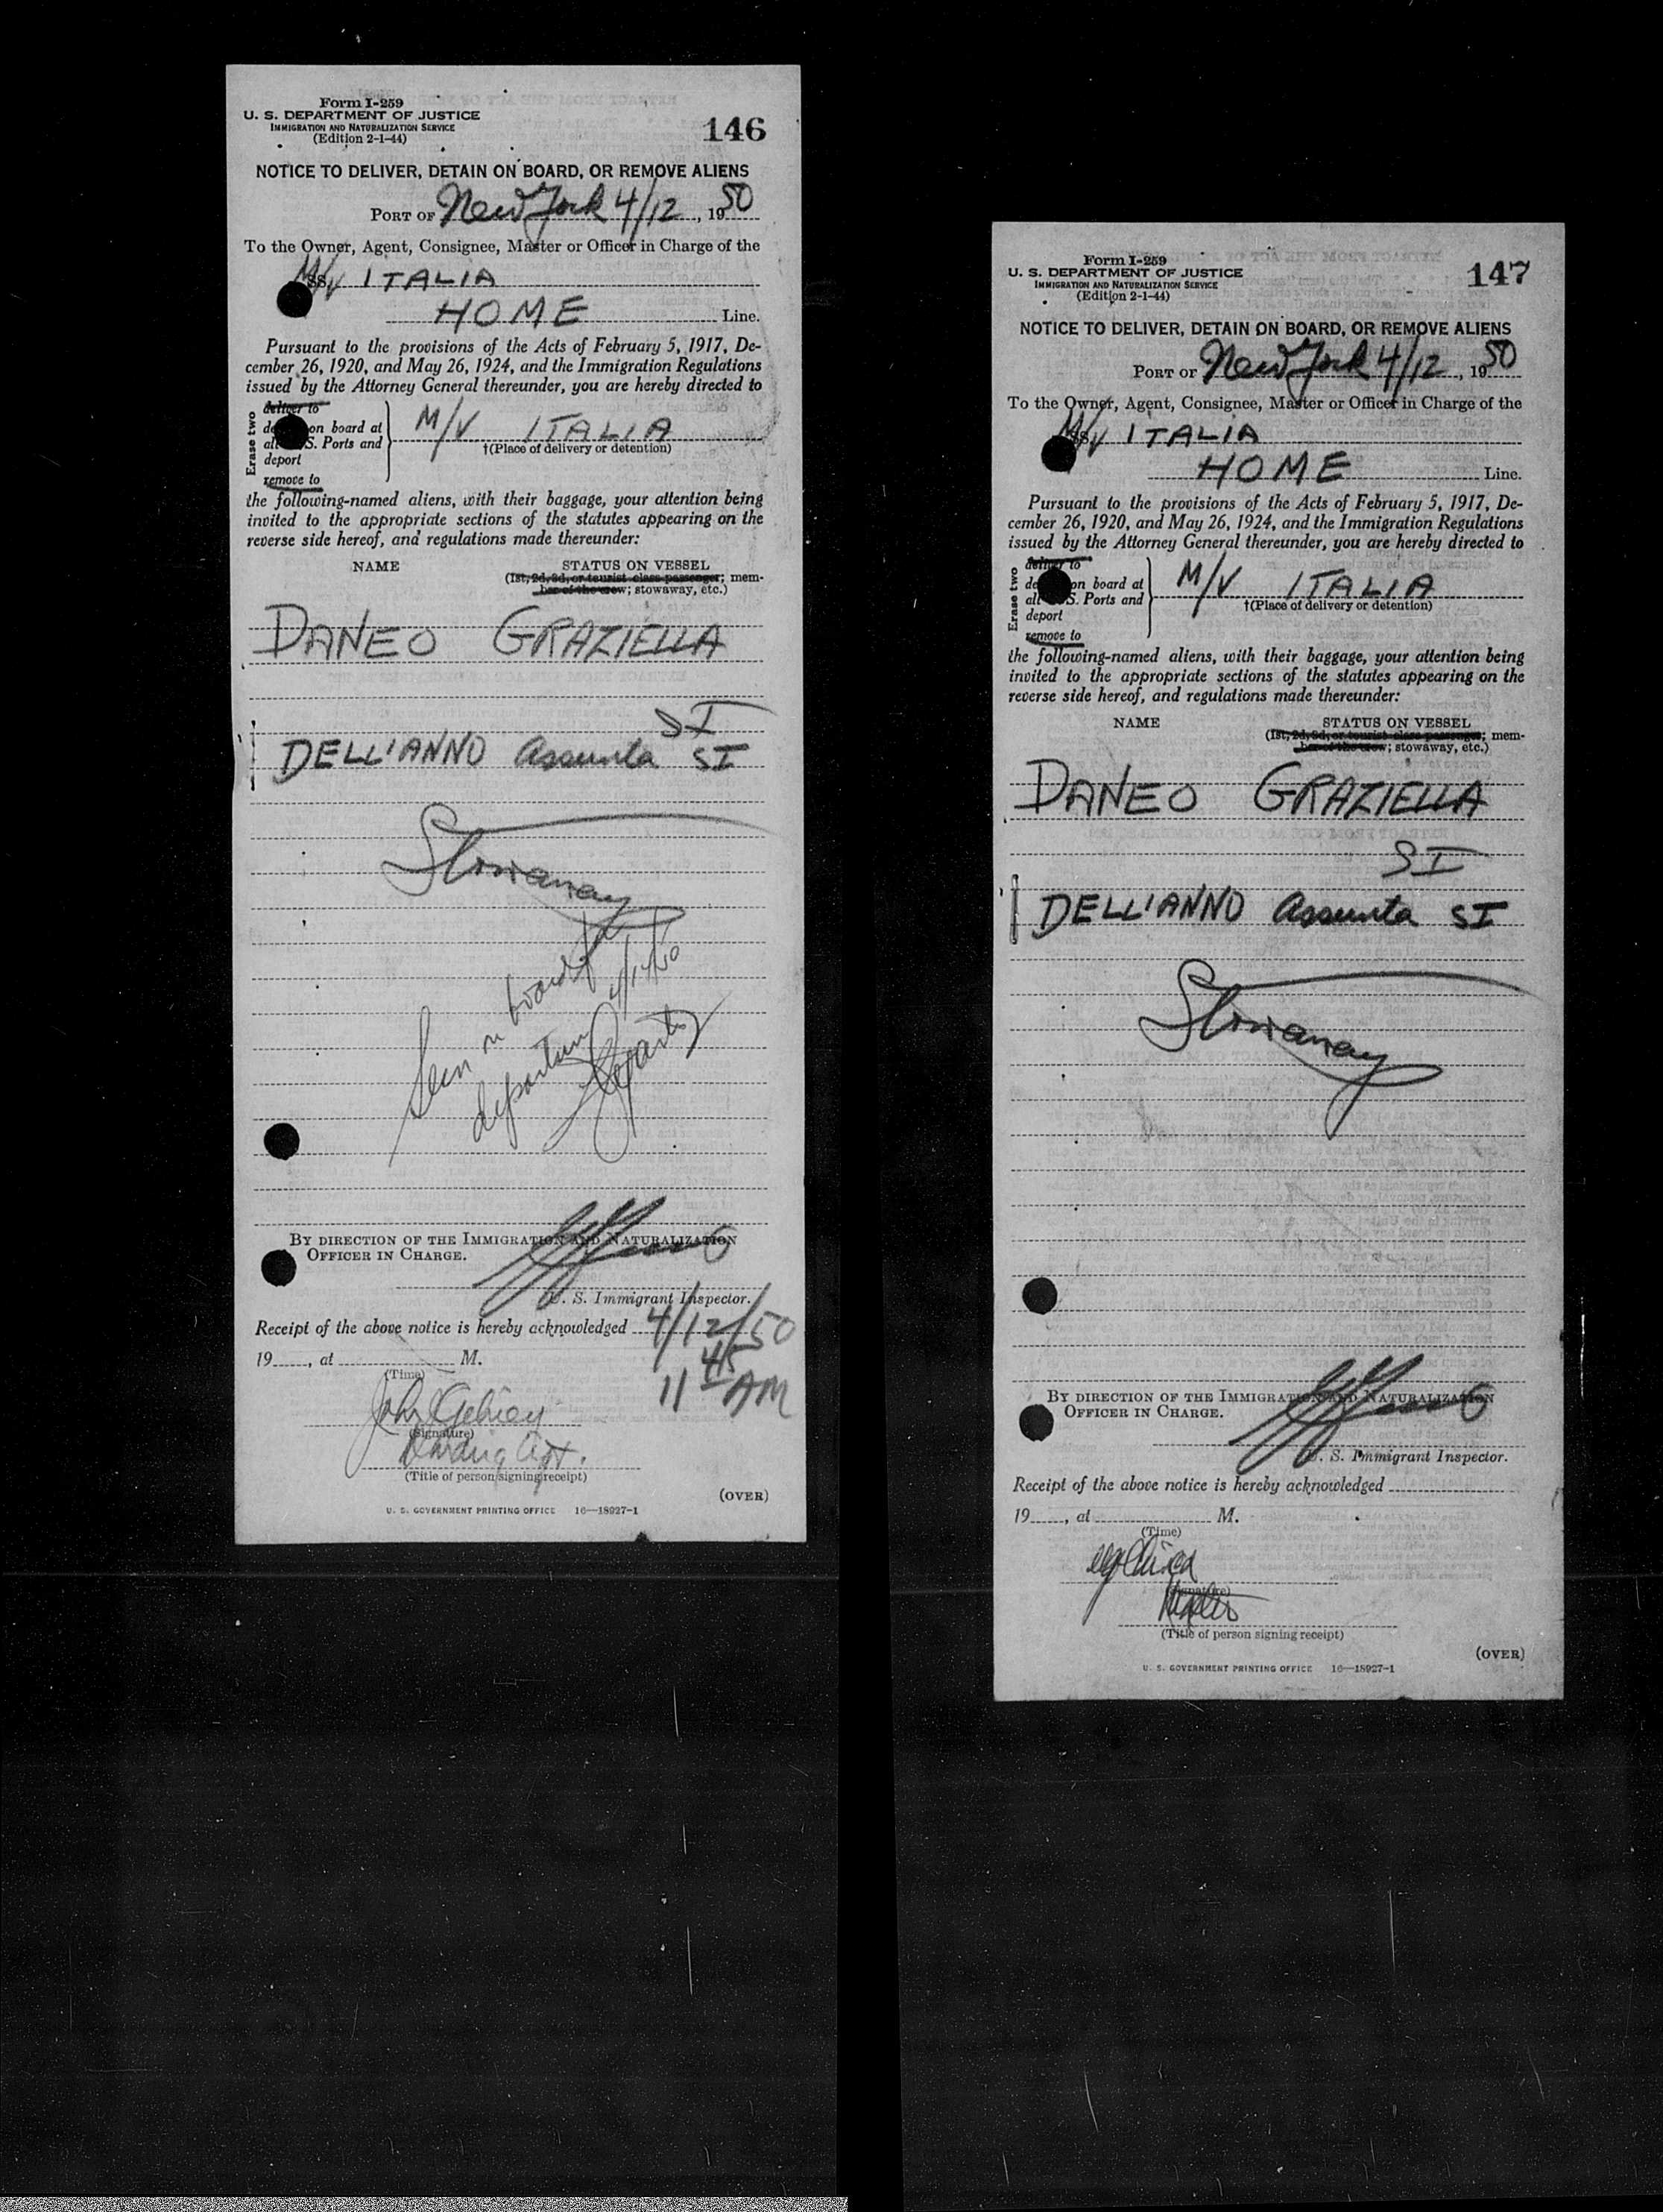 Form I-259
U. S. DEPARTMENT OF JUSTICE
IMMIGRATION AND NATURALIZATION SERVICE
(Edition 2-1-44)
146
NOTICE TO DELIVER, DETAIN ON BOARD, OR REMOVE ALIENS
PORT OF New York 4/12, 1950
To the Owner, Agent, Consignee, Master or Officer in Charge of the
M/V ITALIA
HOME Line.
Pursuant to the provisions of the Acts of February 5, 1917, De-
cember 26, 1920, and May 26, 1924, and the Immigration Regulations
issued by the Attorney General thereunder, you are hereby directed to
Erase two
deliver to
on board at
S. Ports and
deport
remove to
M/V ITALIA
†(Place of delivery or detention)
the following-named aliens, with their baggage, your attention being
invited to the appropriate sections of the statutes appearing on the
reverse side hereof, and regulations made thereunder:
NAME STATUS ON VESSEL
(1st, 2d, 3d, or tourist class passenger; mem-
ber of the crew; stowaway, etc.)
DANEO GRAZIELLA
SI
DELL'ANNO Assunta SI
Stowaway
Seen on board for
departure 4/14/50
BY DIRECTION OF THE IMMIGRATION AND NATURALIZATION
OFFICER IN CHARGE.
U. S. Immigrant Inspector.
Receipt of the above notice is hereby acknowledged 4/12/50
19 , at M.
11 45 AM
(Time)
John
(Signature)
(Title of person signing receipt)
(OVER)
U. S. GOVERNMENT PRINTING OFFICE 16—18927-1
Form I-259
U. S. DEPARTMENT OF JUSTICE
IMMIGRATION AND NATURALIZATION SERVICE
(Edition 2-1-44)
147
NOTICE TO DELIVER, DETAIN ON BOARD, OR REMOVE ALIENS
PORT OF New York 4/12, 1950
To the Owner, Agent, Consignee, Master or Officer in Charge of the
M/V ITALIA
HOME Line.
Pursuant to the provisions of the Acts of February 5, 1917, De-
cember 26, 1920, and May 26, 1924, and the Immigration Regulations
issued by the Attorney General thereunder, you are hereby directed to
Erase two
deliver to
on board at
S. Ports and
deport
remove to
M/V ITALIA
†(Place of delivery or detention)
the following-named aliens, with their baggage, your attention being
invited to the appropriate sections of the statutes appearing on the
reverse side hereof, and regulations made thereunder:
NAME STATUS ON VESSEL
(1st, 2d, 3d, or tourist class passenger; mem-
ber of the crew; stowaway, etc.)
DANEO GRAZIELLA
SI
DELL'ANNO Assunta SI
Stowaway
BY DIRECTION OF THE IMMIGRATION AND NATURALIZATION
OFFICER IN CHARGE.
U. S. Immigrant Inspector.
Receipt of the above notice is hereby acknowledged
19 , at M.
(Time)
(Signature)
(Title of person signing receipt)
(OVER)
U. S. GOVERNMENT PRINTING OFFICE 16—18927-1